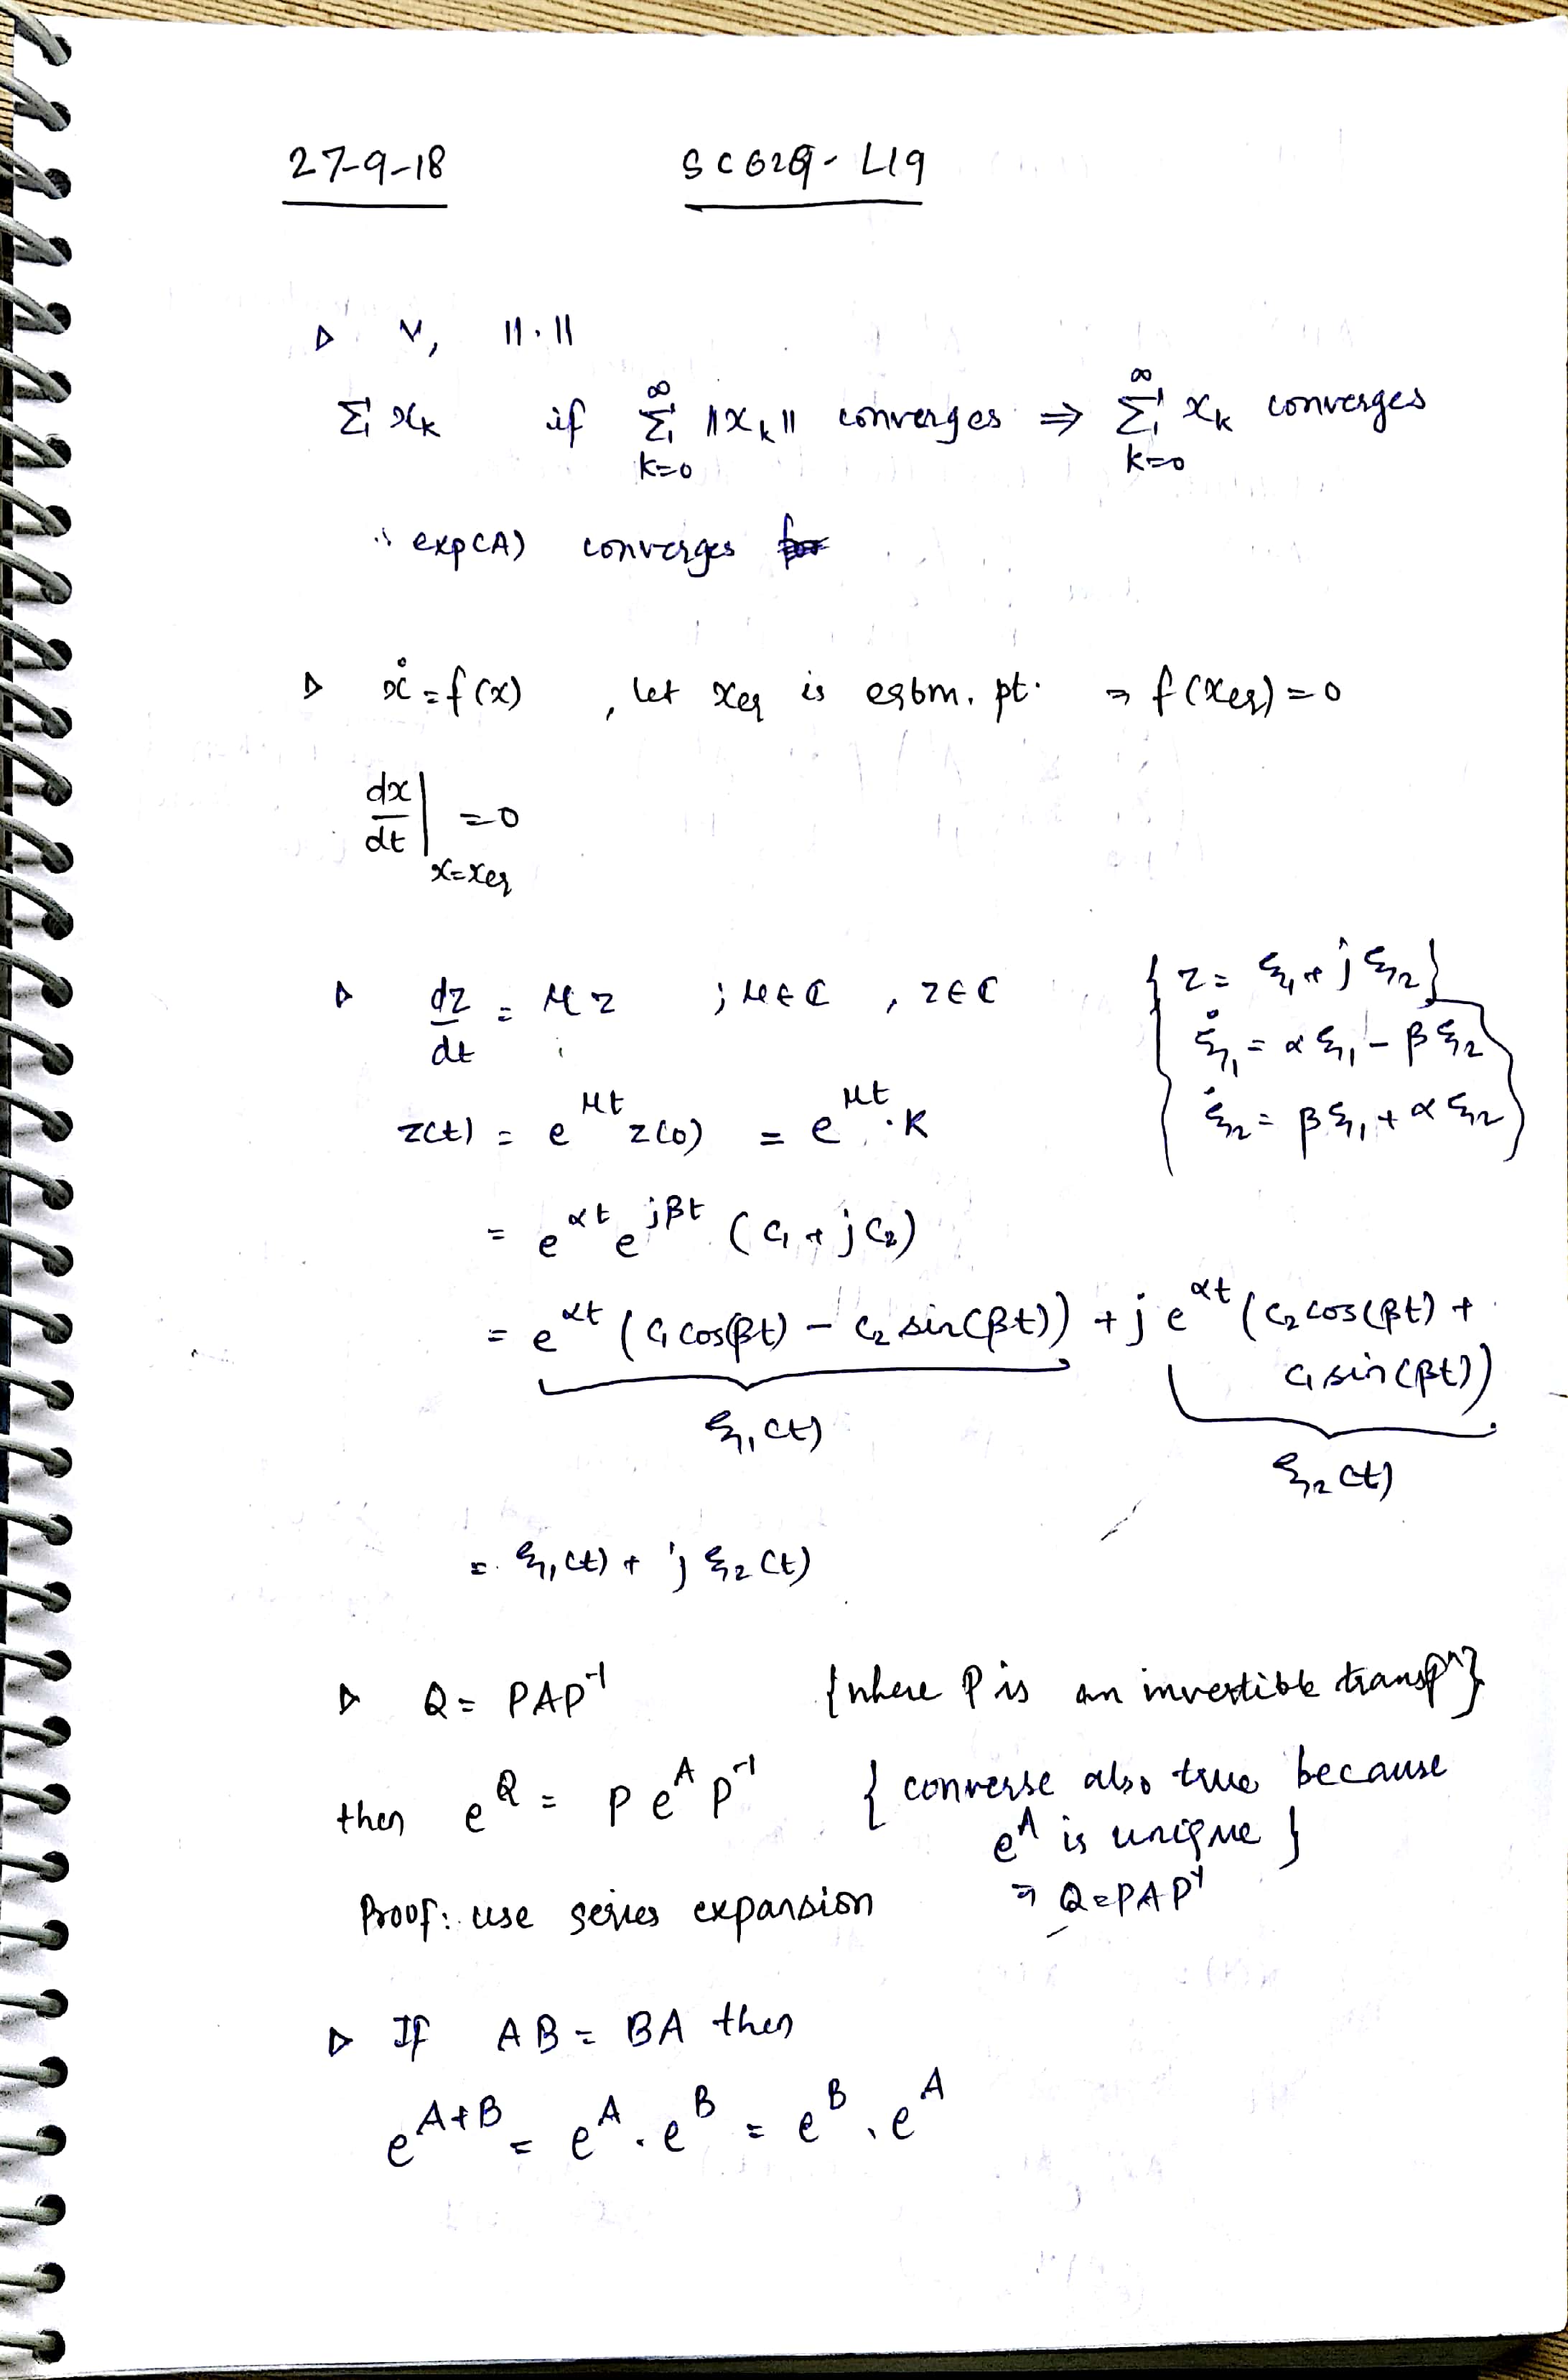 27-9-18 SC629- L19
▷ V, ||·||
Σ xₖ if Σ_{k=0}^{∞} ||xₖ|| converges ⇒ Σ_{k=0}^{∞} xₖ converges
∴ exp(A) converges
▷ ẋ = f(x) , let x_eq is eqbm. pt. ⇒ f(x_eq) = 0
dx/dt |_{x=x_eq} = 0
▷ dz/dt = μz ; μ∈ℂ , z∈ℂ { z = ξ₁ + jξ₂ }
{ ξ̇₁ = αξ₁ - βξ₂
ξ̇₂ = βξ₁ + αξ₂ }
z(t) = e^{μt} z(0) = e^{μt}·K
= e^{αt} e^{jβt} (c₁ + jc₂)
= e^{αt} (c₁ cos(βt) - c₂ sin(βt)) + j e^{αt} (c₂ cos(βt) +
c₁ sin(βt))
ξ₁(t)
ξ₂(t)
= ξ₁(t) + jξ₂(t)
▷ Q = PAP⁻¹ {where P is an invertible transfⁿ}
then e^Q = P e^A P⁻¹ { converse also true because
e^A is unique }
Proof: use series expansion ⇒ Q=PAP⁻¹
▷ If AB = BA then
e^{A+B} = e^A . e^B = e^B . e^A